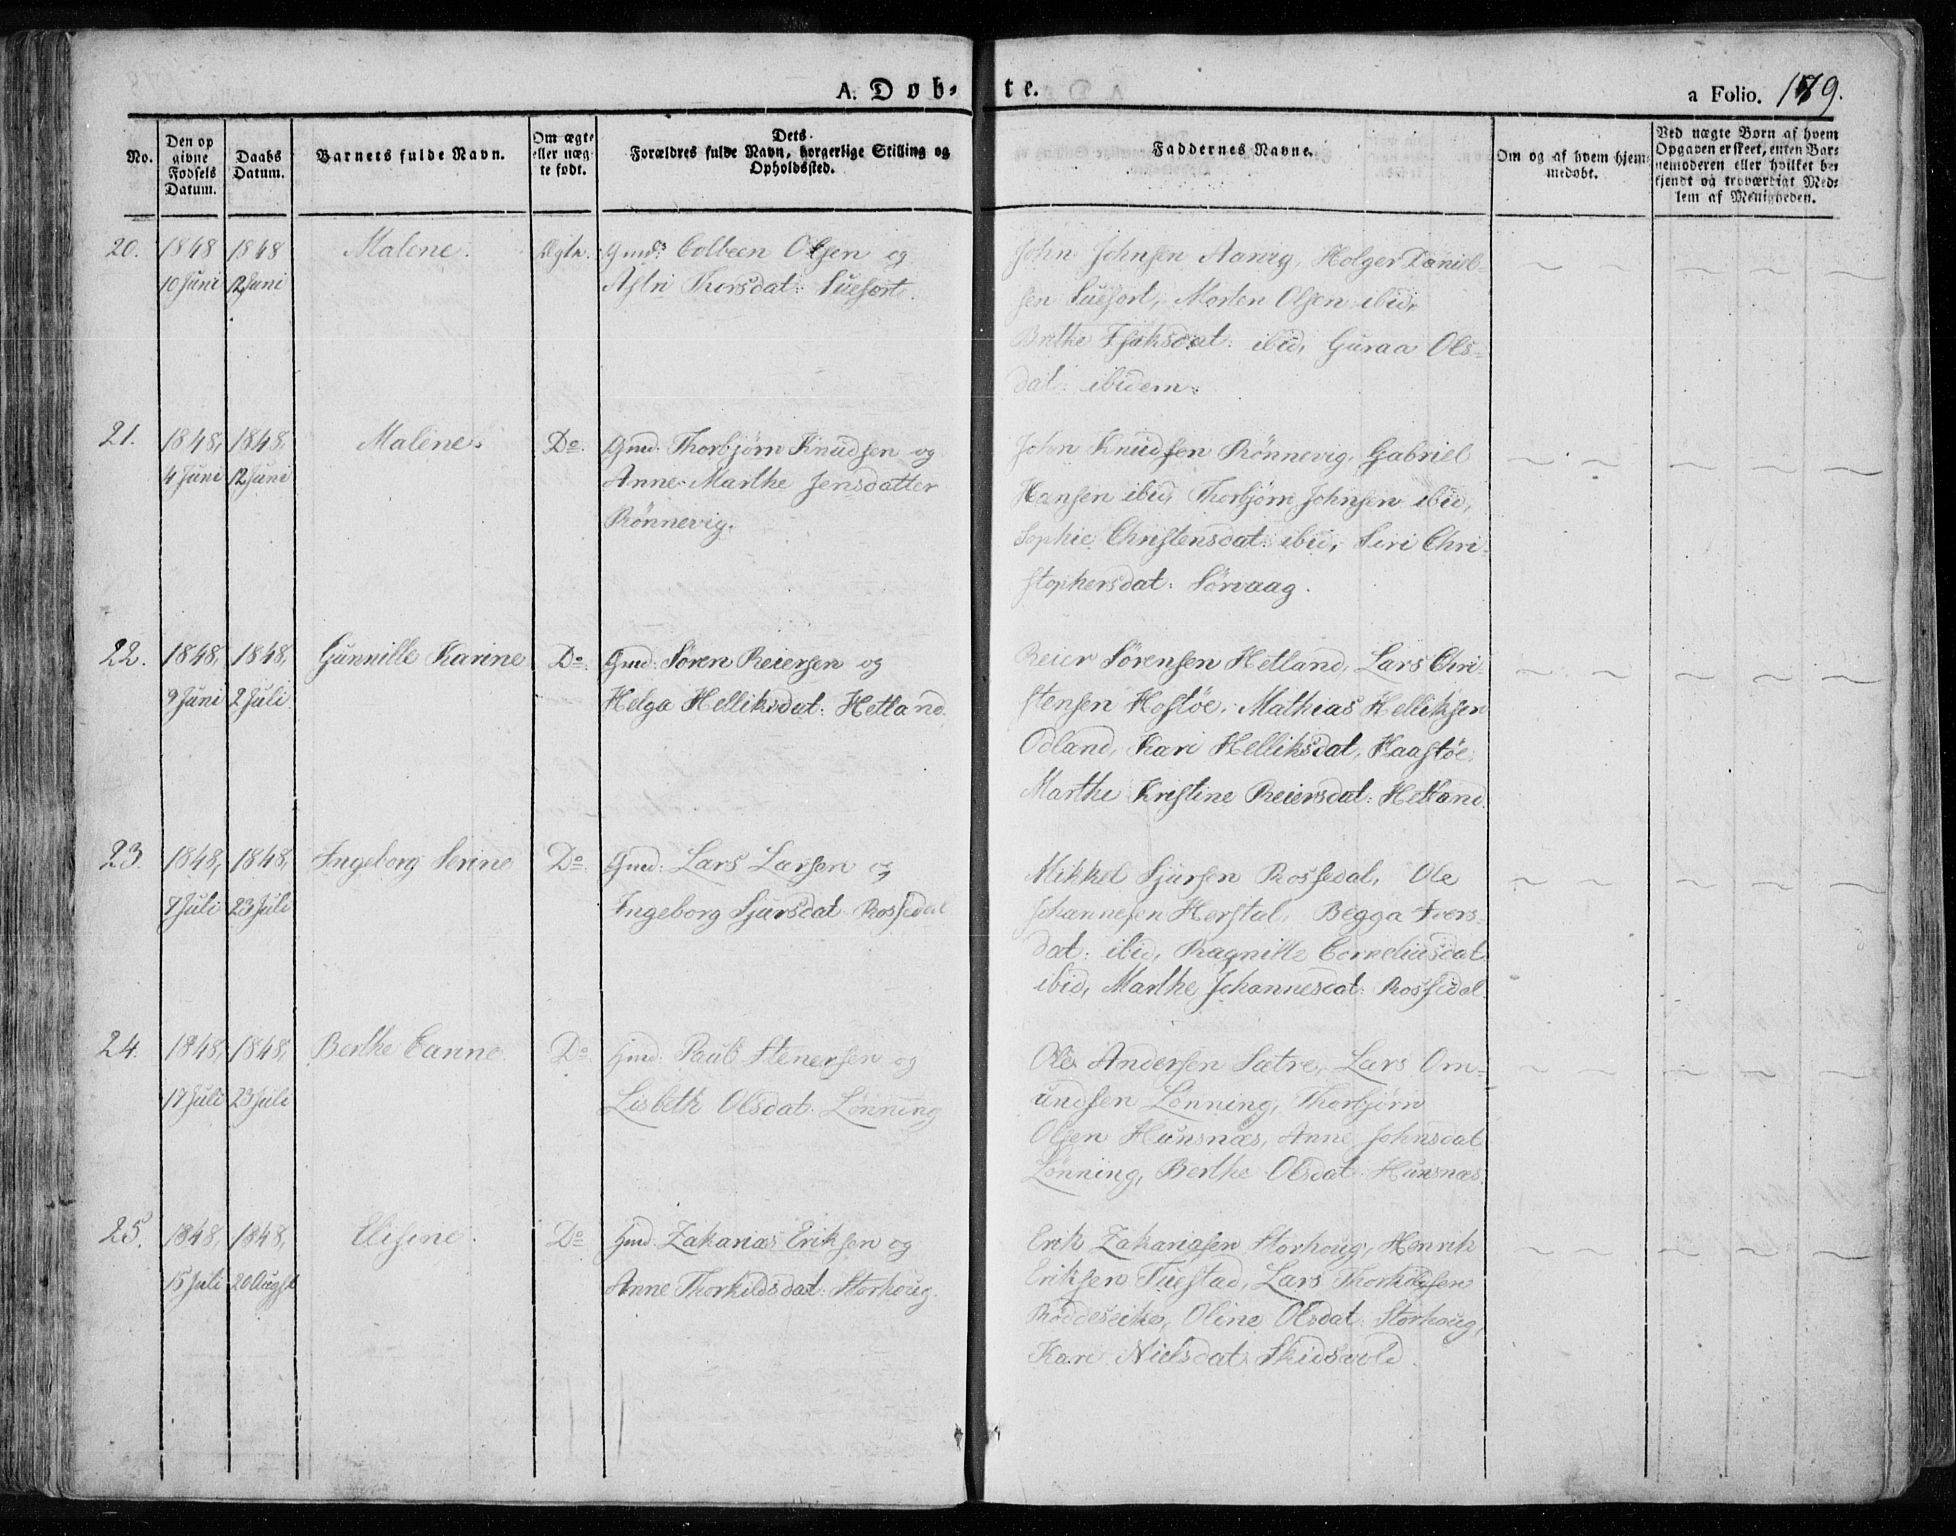 A. Døb-te.
a Folio. 179.
No.
Den opgivne Fødsels Datum.
Daabs Datum.
Barnets fulde Navn.
Om ægte eller uægte født.
Dets Forældres fulde Navn, borgerlige Stilling og Opholdssted.
Faddernes Navne.
Om og af hvem hjemmedøbt.
Ved uægte Børn af hvem Opgaven er skeet, enten Barnemoderen eller hvilket bekjendt og troværdigt Medlem af Menigheden.
20. 1848 1848 Malene. Ægte. Gmd: Colbeen Olsen og
10 Juni 12 Juni Astri Thorsdat: Suefort.
John Johnsen Aaneg, Holger Daniel-
sen Suefort, Morten Olsen ibid,
Brithe Isaksdat: ibid, Guraa Ols-
dat: ibidem.
21. 1848, 1848, Malene. Do. Gmd: Thorbjørn Knudsen og
4 Juni 12 Juni Anne Marthe Jensdatter
Rønnevig.
John Knudsen Rønnevig, Gabriel
Hansen ibid, Thorbjørn Johnsen ibid,
Sophie Christensdat: ibid, Siri Chri-
stophersdat: Sørvaag.
22. 1848, 1848, Gunnille Karine Do. Gmd: Søren Reiersen og
9 Juni 2 Juli Helga Helliksdat: Hetland.
Reier Sørensen Hetland, Lars Chri-
stensen Hostøe, Mathias Helliksen
Odland, Kari Helliksdat, Haastøe,
Marthe Kristine Reiersdat: Hetland.
23. 1848, 1848, Ingeborg Serine Do. Gmd: Lars Larsen og
8 Juli 23 Juli Ingeborg Sjursdat: Rossedal
Mikkel Sjursen Rossedal, Ole
Johannesen Herstal, Begga Ivers-
dat: ibid, Ragnille Corneliusdat
ibid, Marthe Johannesdat: Rossedal.
24. 1848, 1848, Berthe Canne. Do. Gmd: Paul Stenersen og
17 Juli 23 Juli Lisbeth Olsdat: Lønning
Ole Andersen Sætre, Lars Om-
undsen Lønning, Thorbjørn
Olsen Hunsnæs, Anne Johnsdat
Lønning, Berthe Olsdat: Hunsnæs.
25. 1848, 1848, Elisine. Do. Gmd: Zakarias Eriksen og
15 Juli 20 Augst Anne Thorkildsdat: Storhoug.
Erik Zakariasen Storhoug, Henrik
Eriksen Tuestad, Lars Thorkilsen
Røddeseike, Oline Olsdat: Storhoug,
Kari Nielsdat: Skidsvold.